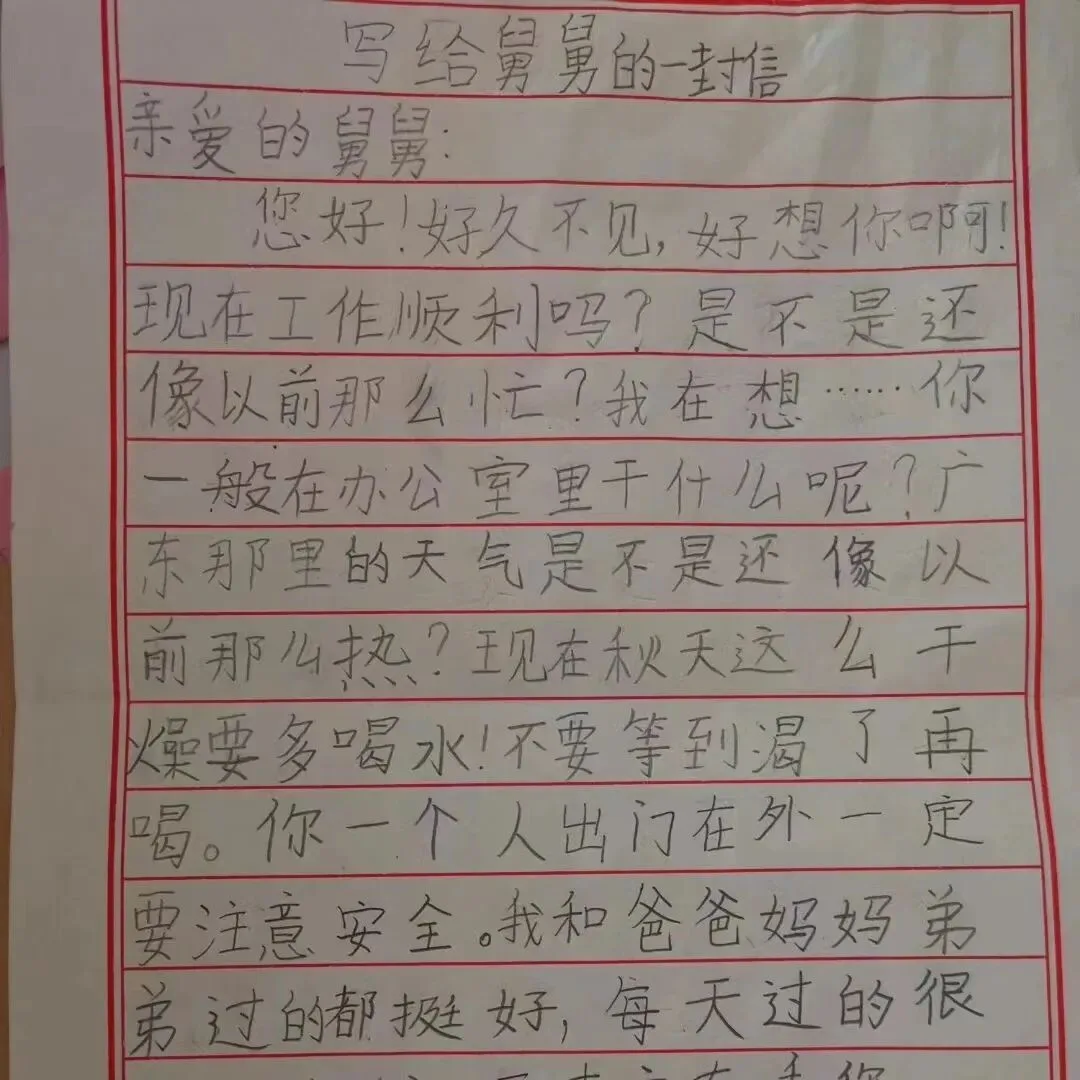 写给舅舅的一封信
亲爱的舅舅:
您好!好久不见,好想你啊!
现在工作顺利吗?是不是还
像以前那么忙?我在想……你
一般在办公室里干什么呢?广
东那里的天气是不是还像以
前那么热?现在秋天这么干
燥要多喝水!不要等到渴了再
喝。你一个人出门在外一定
要注意安全。我和爸爸妈妈弟
弟过的都挺好,每天过的很